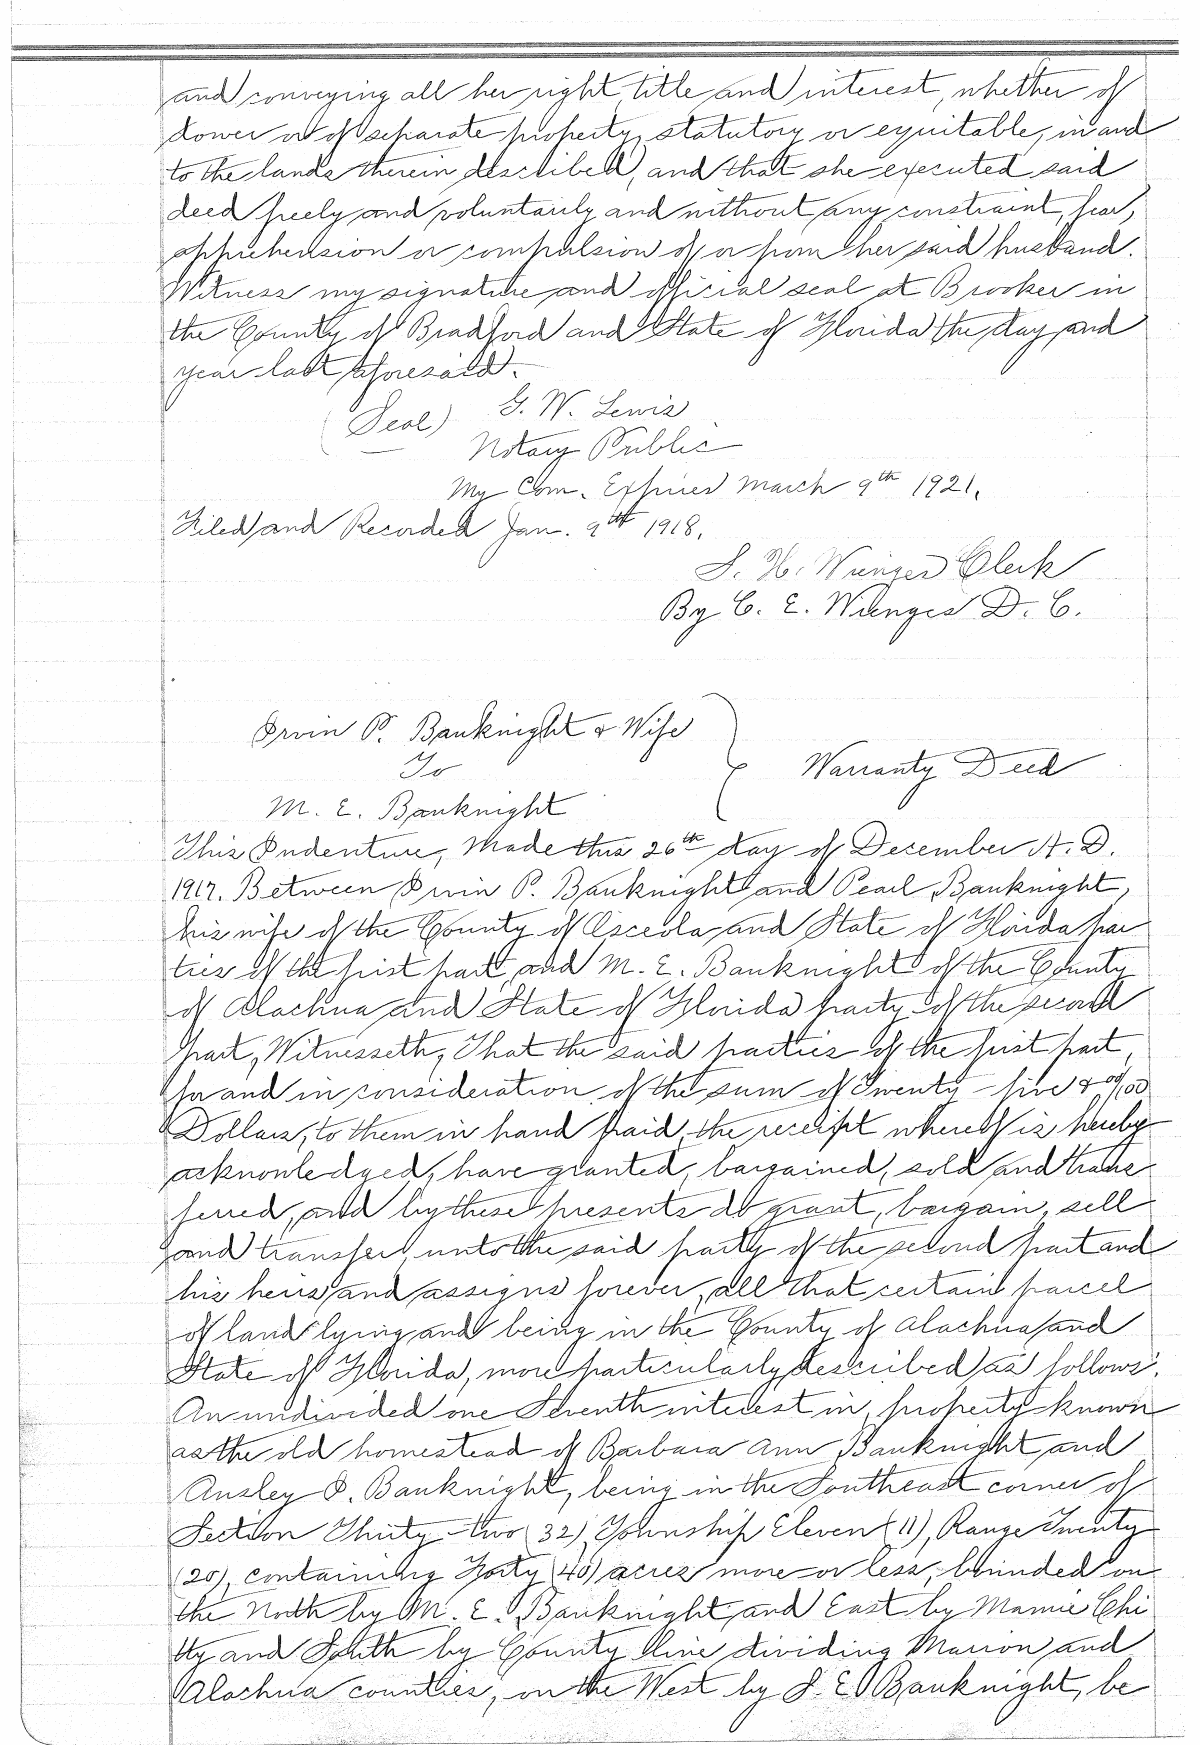 and conveying all her right, title and interest, whether of
dower or of separate property, statutory or equitable, in and
to the lands therein described, and that she executed said
deed freely and voluntarily and without any constraint, fear,
apprehension or compulsion of or from her said husband.
Witness my signature and official seal at Brooker in
the County of Bradford and State of Florida the day and
year last aforesaid.
(Seal) G. W. Lewis
Notary Public
My Com. Expires March 9th 1921.
Filed and Recorded Jan. 9th 1918.
S. H. Wienges Clerk
By C. E. Wienges D. C.
Irvin P. Banknight & Wife
To
Warranty Deed
M. E. Banknight
This Indenture, Made this 26th day of December A. D.
1917. Between Irvin P. Banknight and Pearl Banknight,
his wife of the County of Osceola and State of Florida par
ties of the first part, and M. E. Banknight of the County
of Alachua and State of Florida party of the second
part, Witnesseth, That the said parties of the first part,
for and in consideration of the sum of Twenty-five & 00/100
Dollars, to them in hand paid, the receipt whereof is hereby
acknowledged, have granted, bargained, sold and trans
ferred, and by these presents do grant, bargain, sell
and transfer unto the said party of the second part and
his heirs and assigns forever, all that certain parcel
of land lying and being in the County of Alachua and
State of Florida, more particularly described as follows:
An undivided one Seventh interest in property known
as the old homestead of Barbara Ann Banknight and
Ansley D. Banknight, being in the Southeast corner of
Section Thirty-two (32), Township Eleven (11), Range Twenty
(20), containing Forty (40) acres more or less; bounded on
the North by M. E. Banknight and East by Mamie Chi
tty and South by County line dividing Marion and
Alachua counties, on the West by J. E. Banknight, be